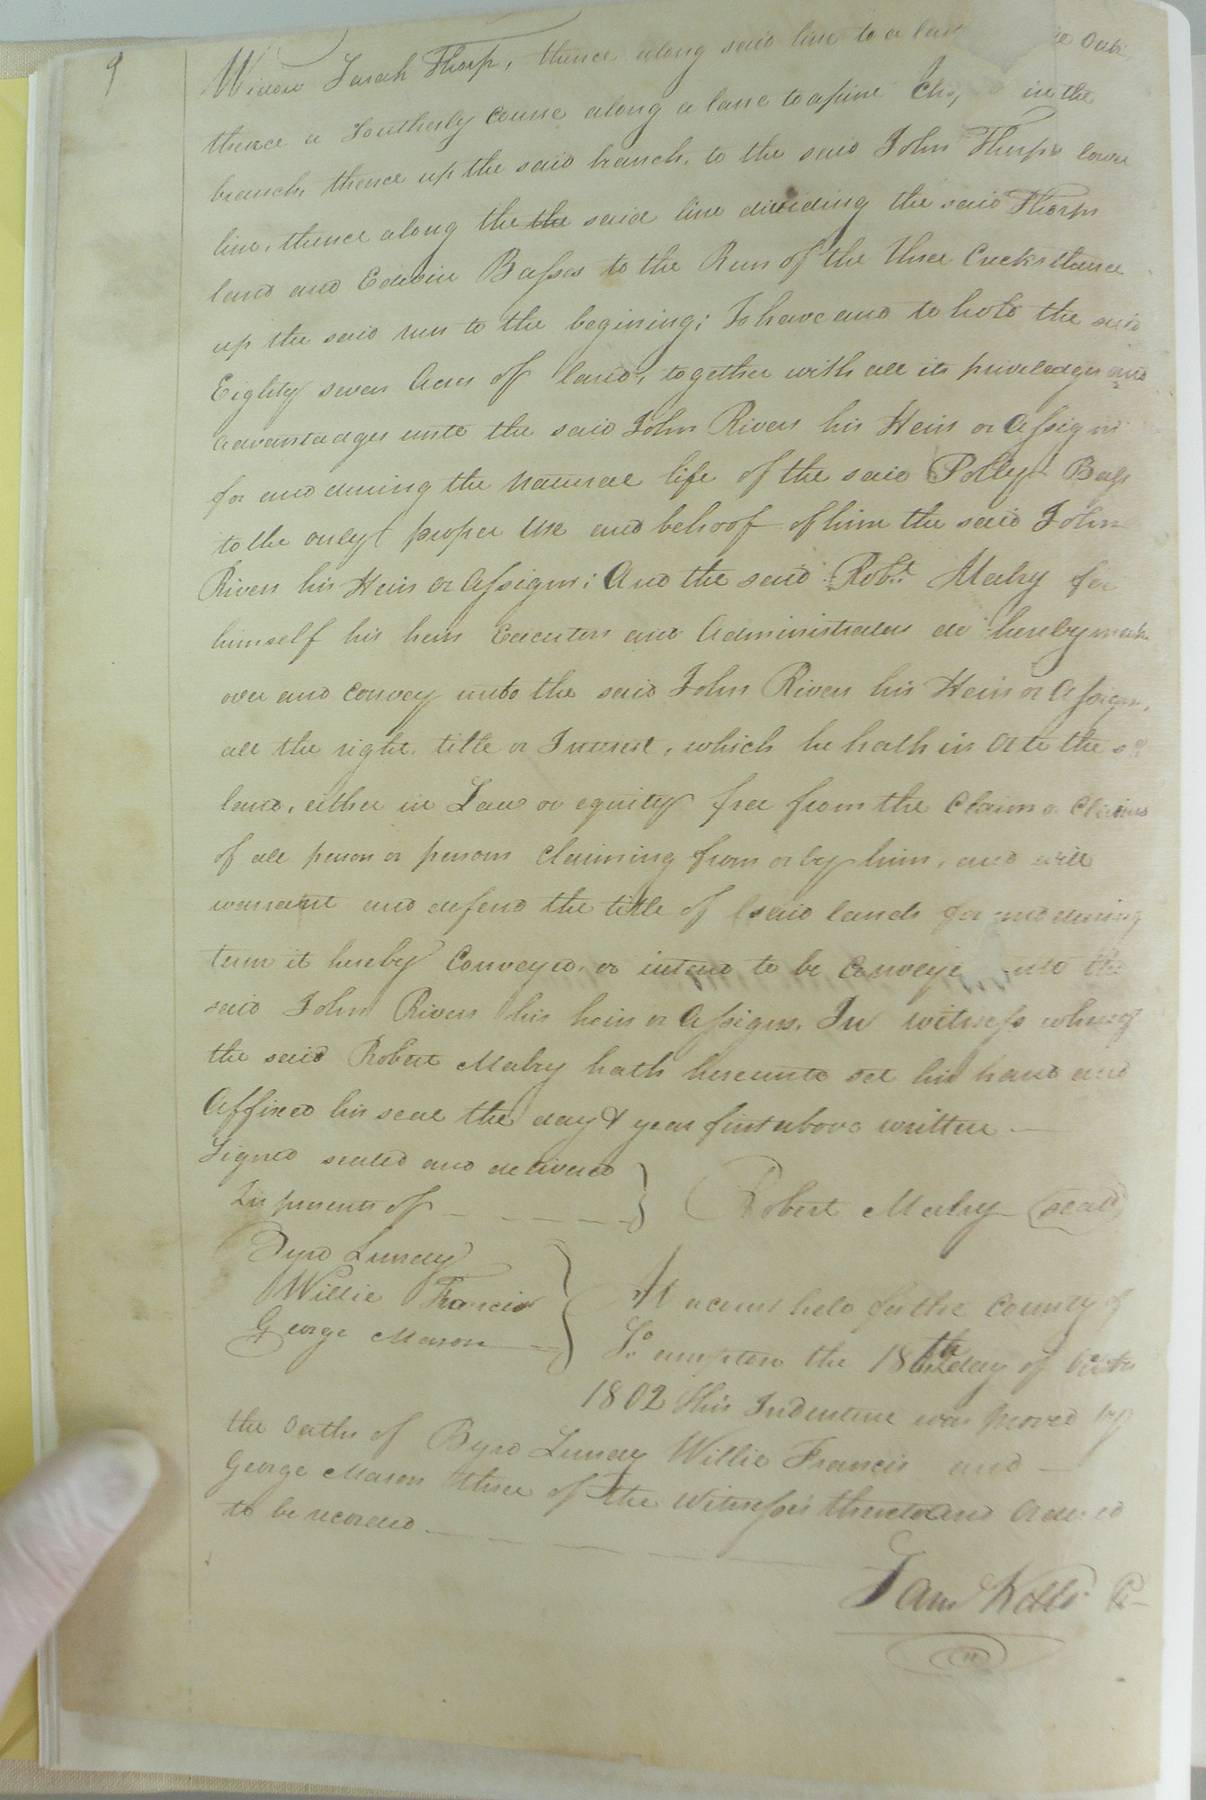 9
Widow Sarah Thorp, thence along said line to a
thence a Southerly course along a lane to a pine in the
branch, thence up the said branch, to the said John Thorps lower
line, thence along the the said line dividing the said Thorps
land and Edwin Basses to the Run of the three Creeks thence
up the said run to the begining; To have and to hold the said
Eighty seven Acres of land, together with all its priviledges and
advantadges unto the said John Rivers his Heirs or Assigns
for and during the natural life of the said Polly Bass
to the only proper use and behoof of him the said John
Rivers his Heirs or Assigns; And the said Robt. Mabry for
himself his heirs Executors and Administrators do hereby make
over and convey unto the said John Rivers his Heirs or Assigns,
all the right, title or Interest, which he hath in or to the sd
land, either in Law or equity free from the Claim or Claims
of all person or persons claiming from or by him, and will
warrant and defend the title of said lands for and during
term it hereby Conveyed, or intend to be Conveyed unto the
said John Rivers his heirs or Assigns. In witness whereof
the said Robert Mabry hath hereunto set his hand and
Affixed his seal the day & year first above written
Signed sealed and delivered
In presents of
Robert Mabry (seal)
Byrd Lundy
Willie Francis
George Mason
At a court held for the County of
So. ampton the 18th day of Octr
1802 This Indenture was proved by
the Oaths of Byrd Lundy Willie Francis and
George Mason three of the Witnesses thereto and Ordered
to be recorded
Saml Kello